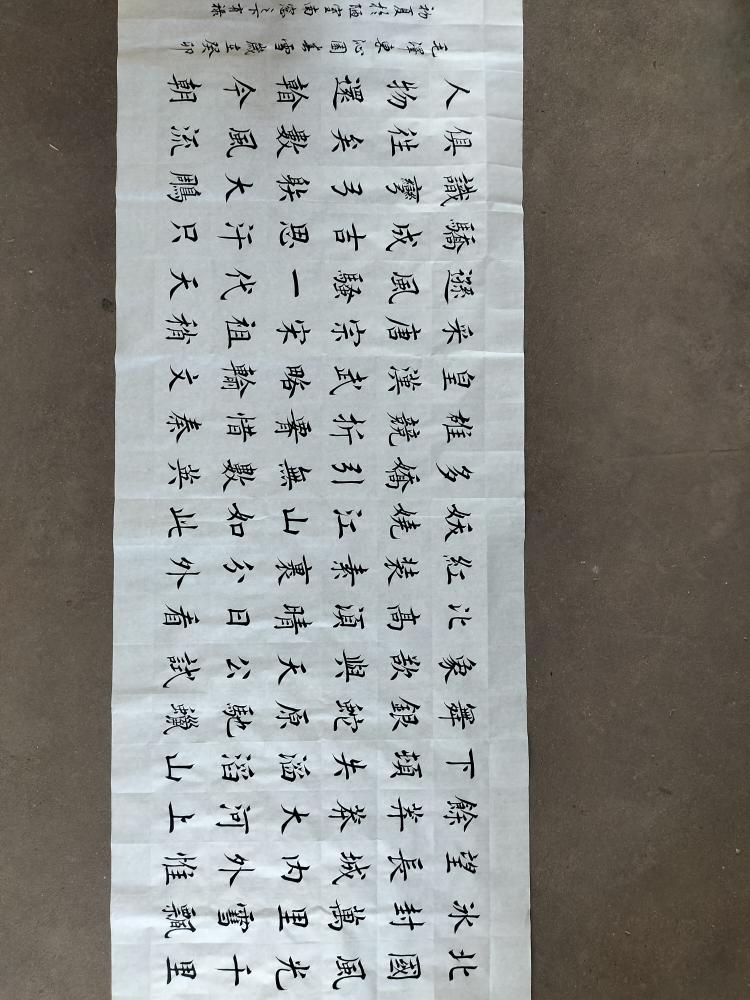 北國風光千里
冰封萬里雪飄
望長城內外惟
餘莽莽大河上
下頓失滔滔山
舞銀蛇原馳蠟
象欲與天公試
比高須晴日看
紅裝素裹分外
妖嬈江山如此
多嬌引無數英
雄競折腰惜秦
皇漢武略輸文
采唐宗宋祖稍
遜風騷一代天
驕成吉思汗只
識彎弓射大鵰
俱往矣數風流
人物還看今朝
毛澤東沁園春雪歲在癸卯
初夏於陋室南窗之下有祿